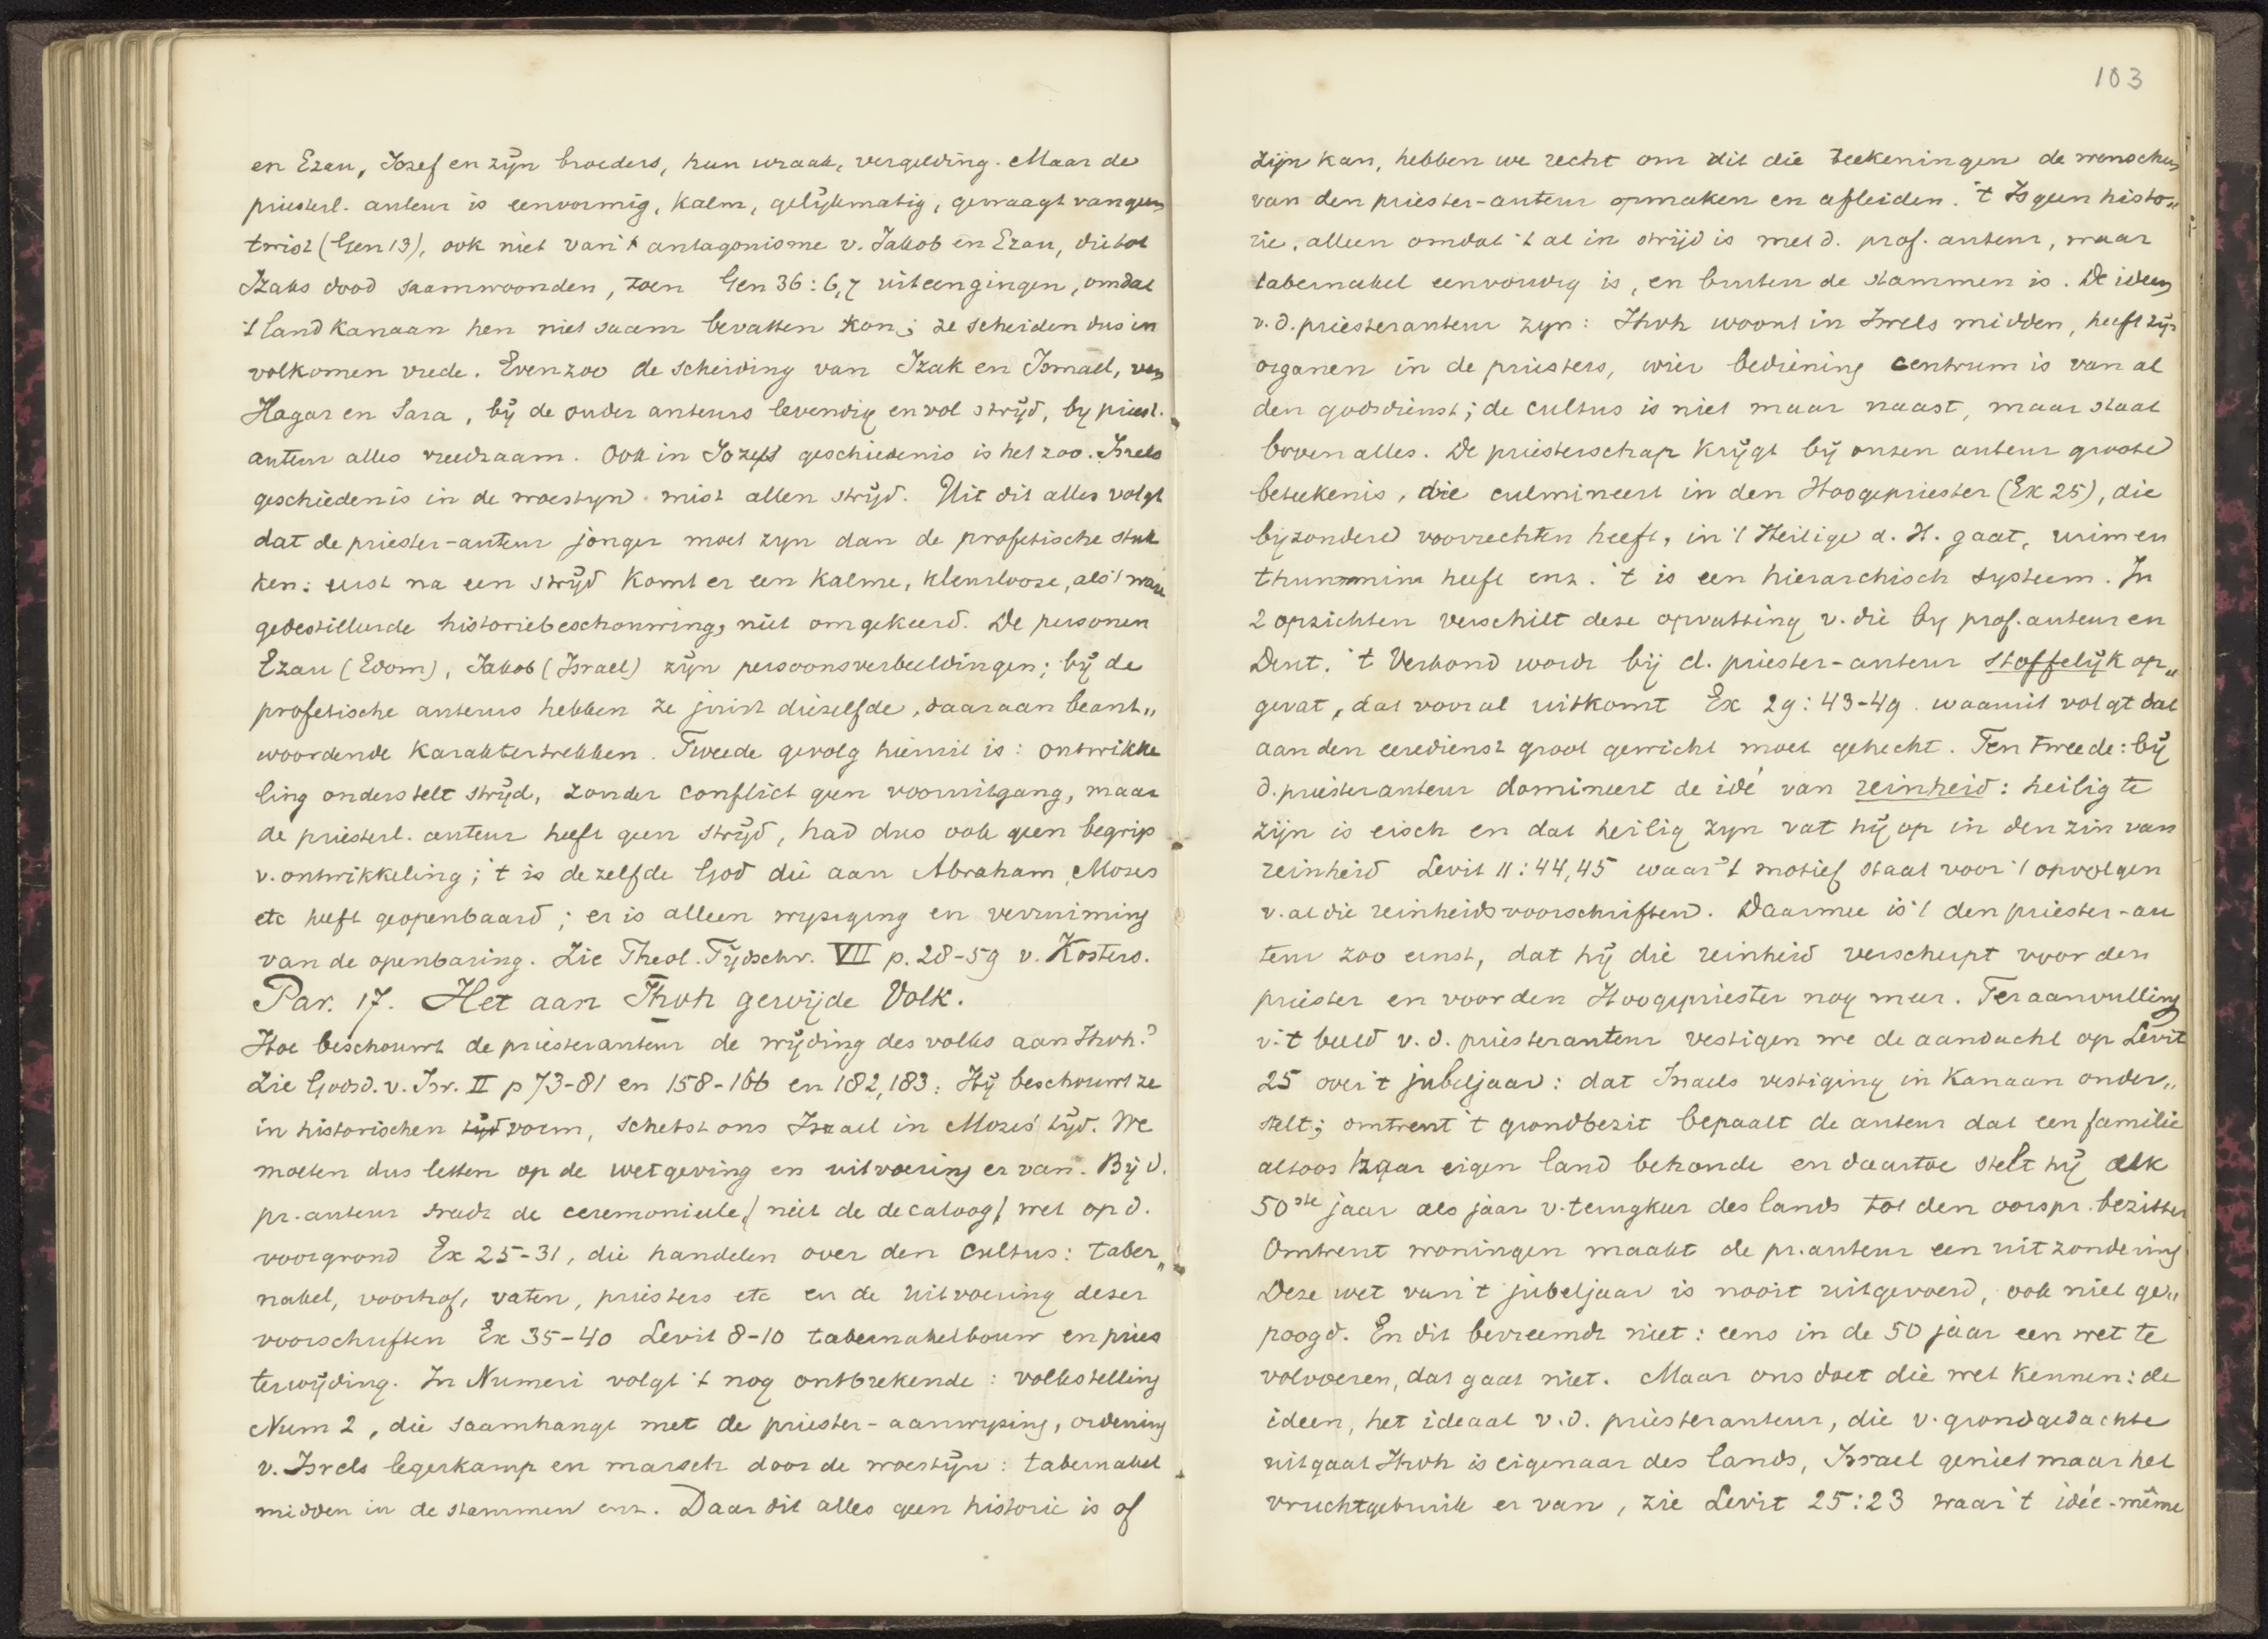 en Ezau, Jozef en zijn broeders, hun wraak, vergelding. Maar de
priesterl. auteur is eenvormig, kalm, gelijkmatig, gewaagt van geen
twist (Gen 13), ook niet van 't antagonisme v. Jakob en Ezau, die tot
Izaks dood saamwoonden, toen Gen 36:6,7 uiteengingen, omdat
't land kanaan hen niet saam bevatten kon; ze scheiden dus in
volkomen vrede. Evenzoo de scheiding van Izak en Ismael, van
Hagar en Sara, bij de ouder auteurs levendig en vol strijd, by priest.
auteur alles vreedzaam. Ook in Jozefs geschiedenis is het zoo. Isrels
geschiedenis in de woestyn mist allen strijd. Uit dit alles volgt
dat de priester-auteur jonger moet zyn dan de profetische stuk
ken: eerst na een strijd komt er een kalme, kleurlooze, als 't ware
gedestilleerde historiebeschouwing, niet omgekeerd. De personen
Ezau (Edom), Jakob (Israel) zijn persoonsverbeeldingen; bij de
profetische auteurs hebben ze juist diezelfde, daaraan beant„
woordende karaktertrekken. Tweede gevolg hieruit is: ontwikke
ling onderstelt strijd, zonder conflict geen vooruitgang, maar
de priesterl. auteur heeft geen strijd, had dus ook geen begrip
v. ontwikkeling; 't is dezelfde God die aan Abraham, Mozes
etc heeft geopenbaard; er is alleen wyziging en verruiming
van de openbaring. Zie Theol. Tijdschr. VII p. 28-59 v. Kosters.
Par. 17. Het aan Jhvh gewijde Volk.
Hoe beschouwt de priesterauteur de wijding des volks aan Jhvh?
Zie Godsd. v. Isr. II p 73-81 en 158-166 en 182,183: Hij beschouwt ze
in historischen tijd vorm, schetst ons Israel in Mozes' tijd. We
moeten dus letten op de wetgeving en uitvoering er van. Bij d.
pr. auteur treedt de ceremonieele (niet de decaloog) wet op d.
voorgrond Ex 25-31, die handelen over den cultus: taber„
nakel, voorhof, vaten, priesters etc en de uitvoering dezer
voorschriften Ex 35-40 Levit 8-10 tabernakelbouw en pries
terwijding. In Numeri volgt 't nog ontbrekende: volkstelling
Num 2, die saamhangt met de priester-aanwyzing, ordening
v. Isrels legerkamp en marsch door de woestijn: tabernakel
midden in de stammen enz. Daar dit alles geen historie is of
103
zijn kan, hebben we recht om uit die teekeningen de wenschen
van den priester-auteur opmaken en afleiden. 't Is geen histo„
rie, alleen omdat 't al in strijd is met d. prof. auteur, waar
tabernakel eenvoudig is, en buiten de stammen is. De ideen
v. d. priesterauteur zyn: Jhvh woont in Isrels midden, heeft zijn
organen in de priesters, wier bediening centrum is van al
den godsdienst; de cultus is niet maar naast, maar staat
boven alles. De priesterschap krijgt bij onzen auteur groote
beteekenis, die culmineert in den Hoogepriester (Ex 25), die
byzondere voorrechten heeft, in 't Heilige d. H. gaat, urim en
thummim heeft enz. 't is een hierarchisch systeem. In
2 opzichten verschilt deze opvatting v. die by prof. auteur en
Deut. 't Verbond wordt bij d. priester-auteur stoffelijk op„
gevat, dat vooral uitkomt Ex 29:43-49. waaruit volgt dat
aan den eeredienst groot gewicht moet gehecht. Ten tweede: bij
d. priesterauteur domineert de idé van reinheid: heilig te
zijn is eisch en dat heilig zyn vat hij op in den zin van
reinheid Levit 11:44,45 waar 't motief staat voor 't opvolgen
v. al die reinheidsvoorschriften. Daarmee is 't den priester-au
teur zoo ernst, dat hij die reinheid verscherpt voor den
priester en voor den Hoogepriester nog meer. Ter aanvulling
v. 't beeld v. d. priesterauteur vestigen we de aandacht op Levit
25 over 't jubeljaar: dat Israels vestiging in Kanaan onder„
stelt; omtrent 't grondbezit bepaalt de auteur dat een familie
altoos haar eigen land behoude en daartoe stelt hij elk
50ste jaar als jaar v. terugkeer des lands tot den oorspr. bezitter
Omtrent woningen maakt de pr. auteur een uitzondering
Deze wet van 't jubeljaar is nooit uitgevoerd, ook niet ge„
poogd. En dit bevreemdt niet: eens in de 50 jaar een wet te
volvoeren, dat gaat niet. Maar ons doet die wet kennen: de
ideen, het ideaal v. d. priesterauteur, die v. grondgedachte
uitgaat Jhvh is eigenaar des lands, Israel geniet maar het
vruchtgebruik er van, zie Levit 25:23 waar 't idée-même